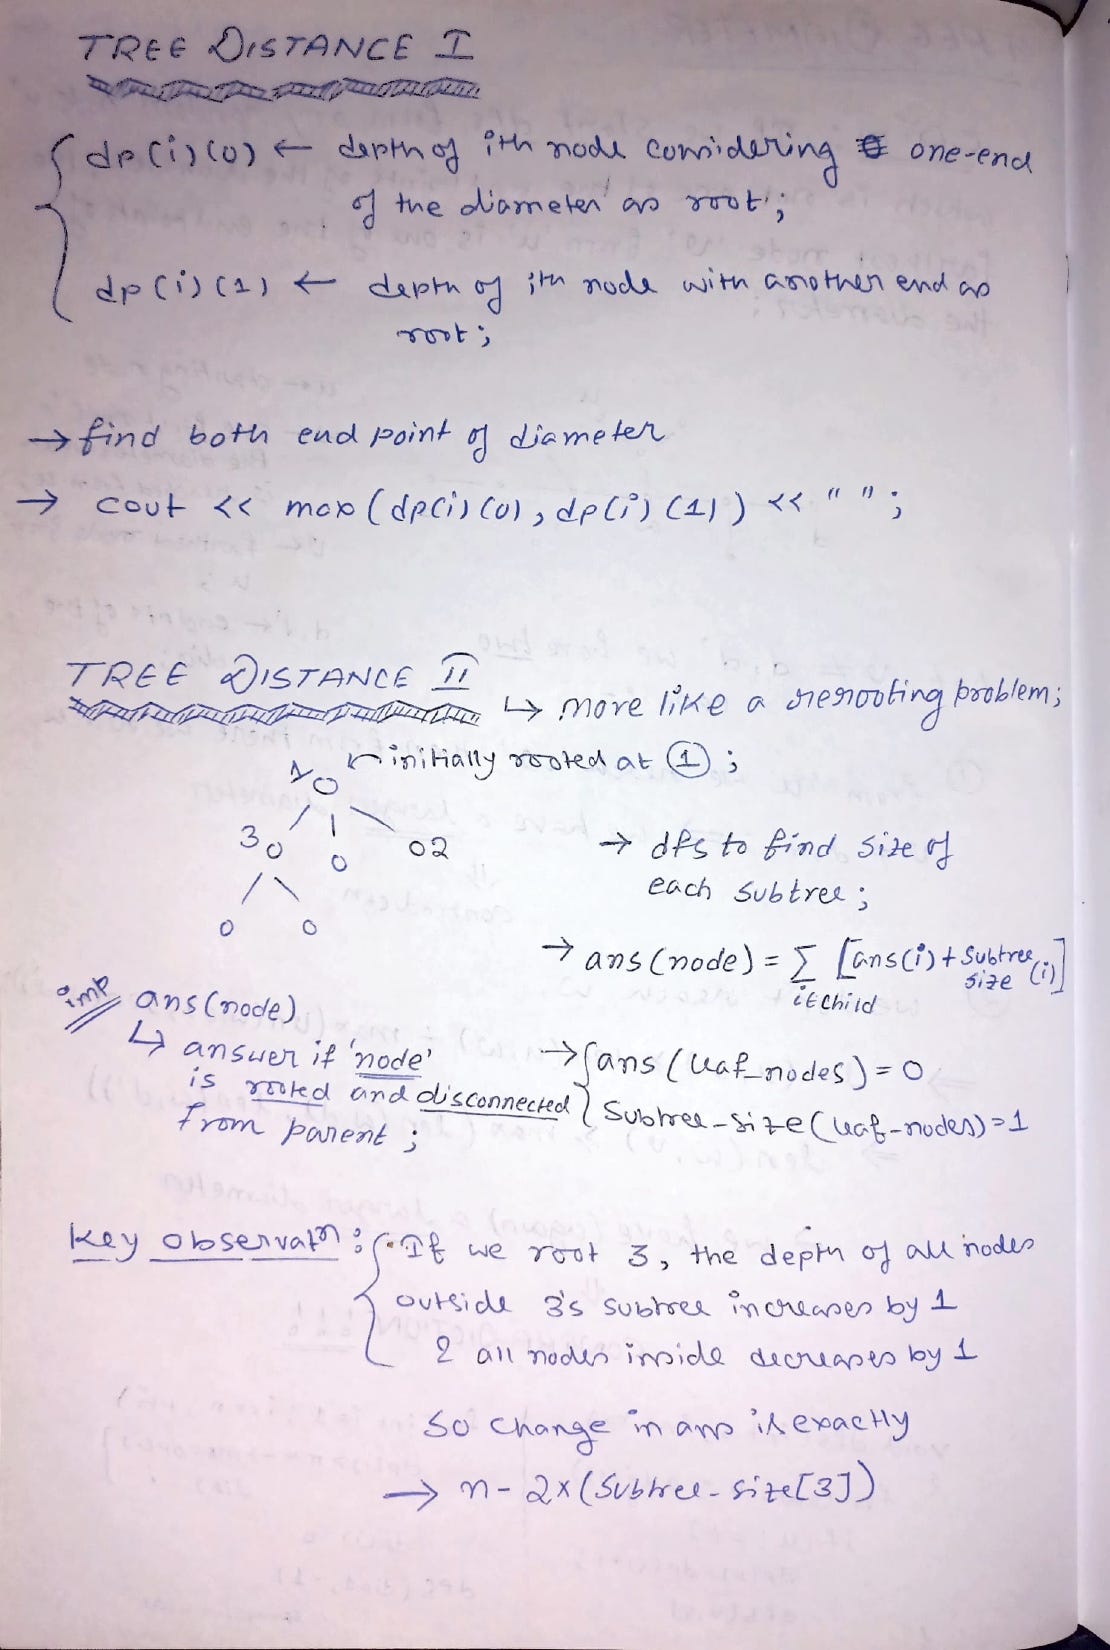 TREE DISTANCE I
dp(i)(0) ← depth of ith node considering one-end
of the diameter as root;
dp(i)(1) ← depth of ith node with another end as
root;
→ find both end point of diameter
→ cout << max(dp(i)(0), dp(i)(1)) << " ";
TREE DISTANCE II
↳ more like a rerooting problem;
1 ← initially rooted at ①;
3 2
→ dfs to find size of
each subtree;
→ ans(node) = Σ [ans(i) + subtree size (i)]
i∈child
imp ans(node)
↳ answer if 'node'
is rooted and disconnected
from parent;
→ { ans(leaf_nodes) = 0
Subtree-size(leaf-nodes) = 1
Key observatn: { • If we root 3, the depth of all nodes
outside 3's subtree increases by 1
& all nodes inside decreases by 1
So change in ans is exactly
→ n - 2x(Subtree-size[3])